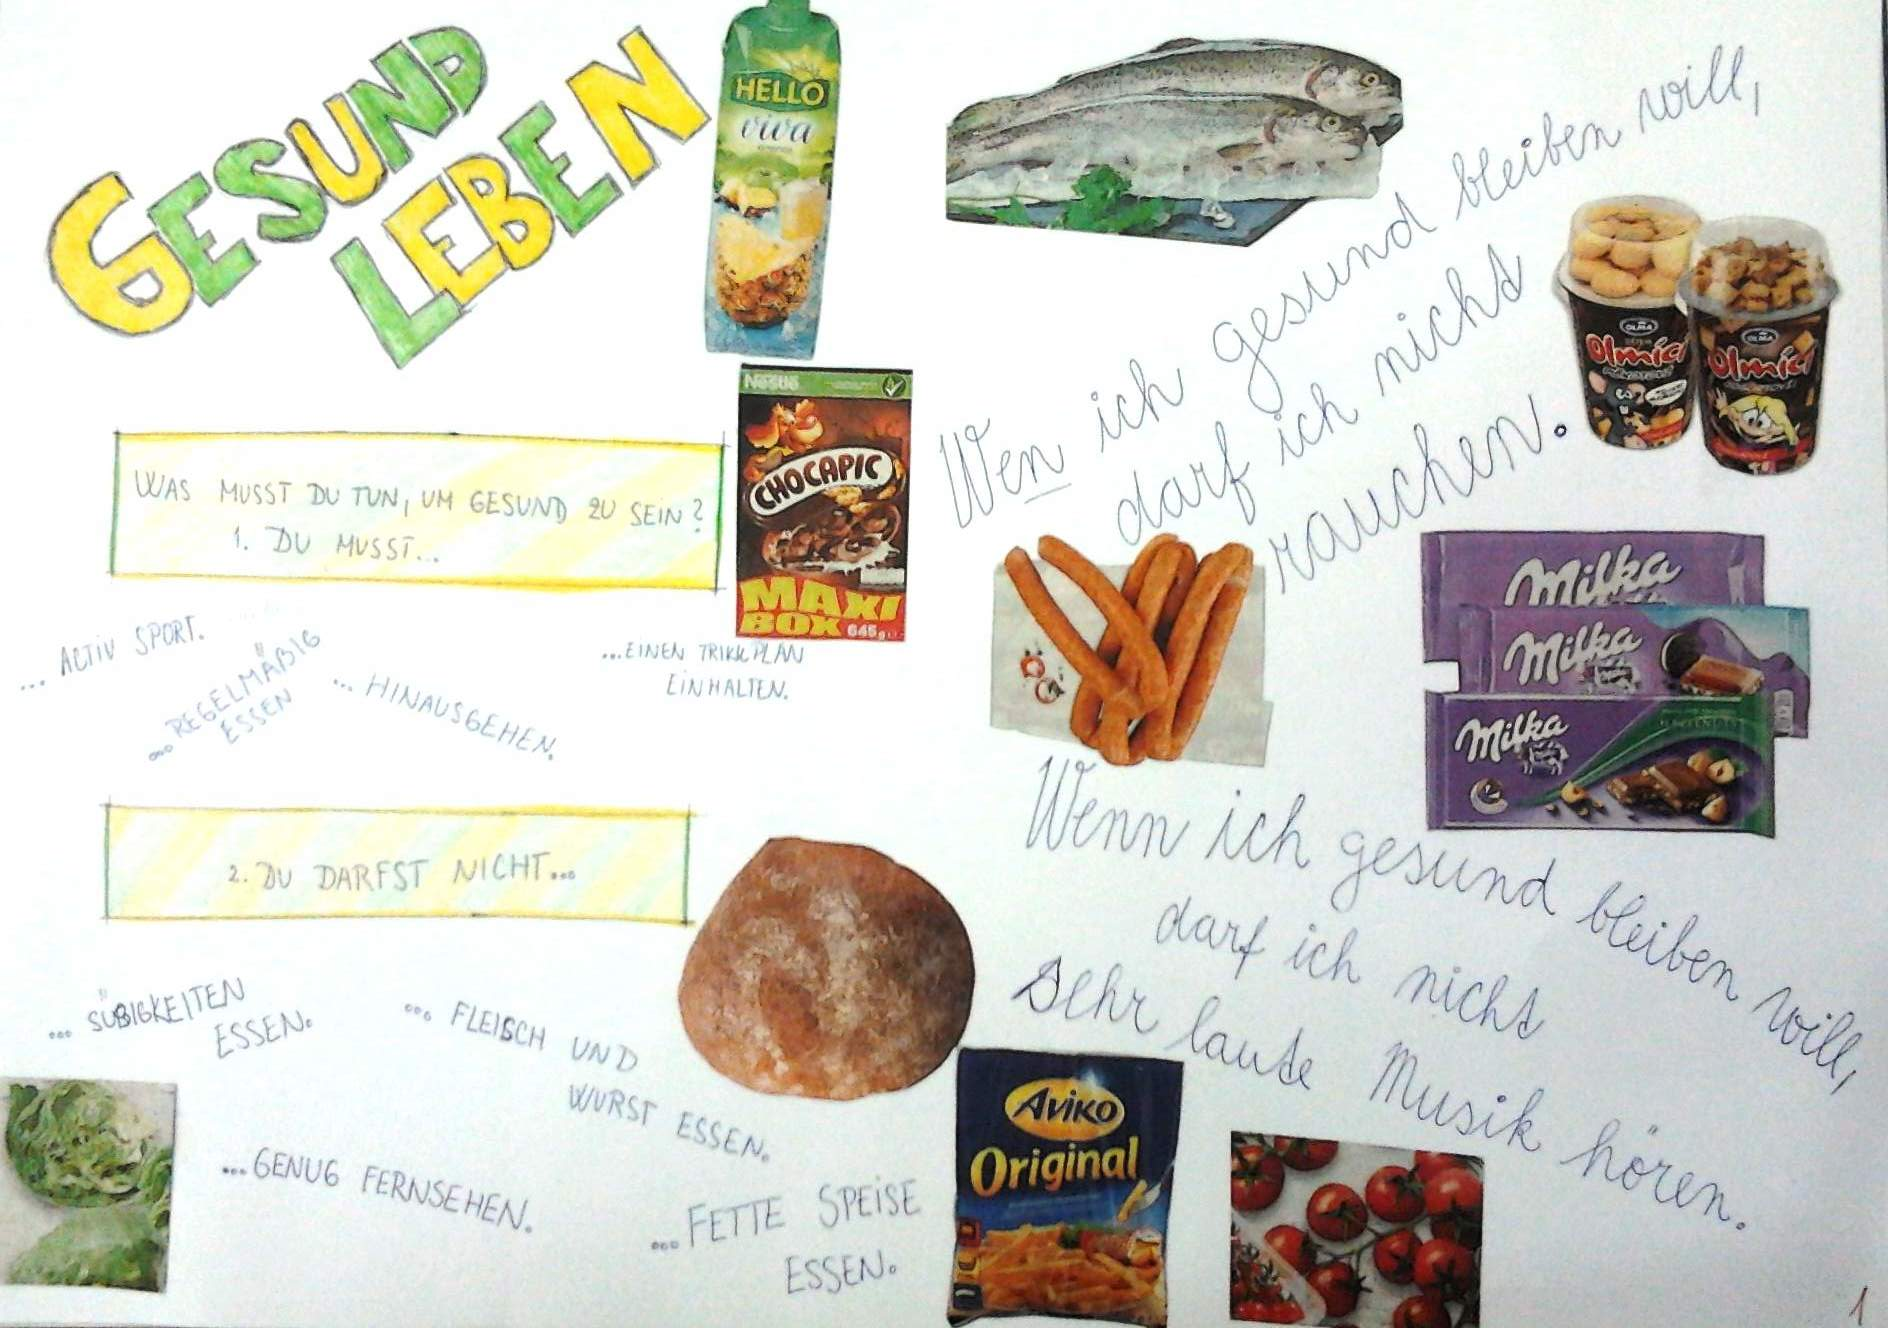 GESUND
LEBEN
HELLO
viva
WAS MUSST DU TUN, UM GESUND ZU SEIN?
1. DU MUSST...
Nestlé
CHOCAPIC
MAXI
BOX 645g
... ACTIV SPORT.
...REGELMÄßIG
ESSEN
... HINAUSGEHEN.
...EINEN TRIKKPLAN
EINHALTEN.
2. DU DARFST NICHT...
... SÜßIGKEITEN
ESSEN.
... FLEISCH UND
WURST ESSEN.
...GENUG FERNSEHEN.
...FETTE SPEISE
ESSEN.
Wen ich gesund bleiben will,
darf ich nicht
rauchen.
OLMA
Olmíci
OLMA
Olmíci
Milka
Milka
Milka
Wenn ich gesund bleiben will,
darf ich nicht
sehr laute Musik hören.
Aviko
Original
1